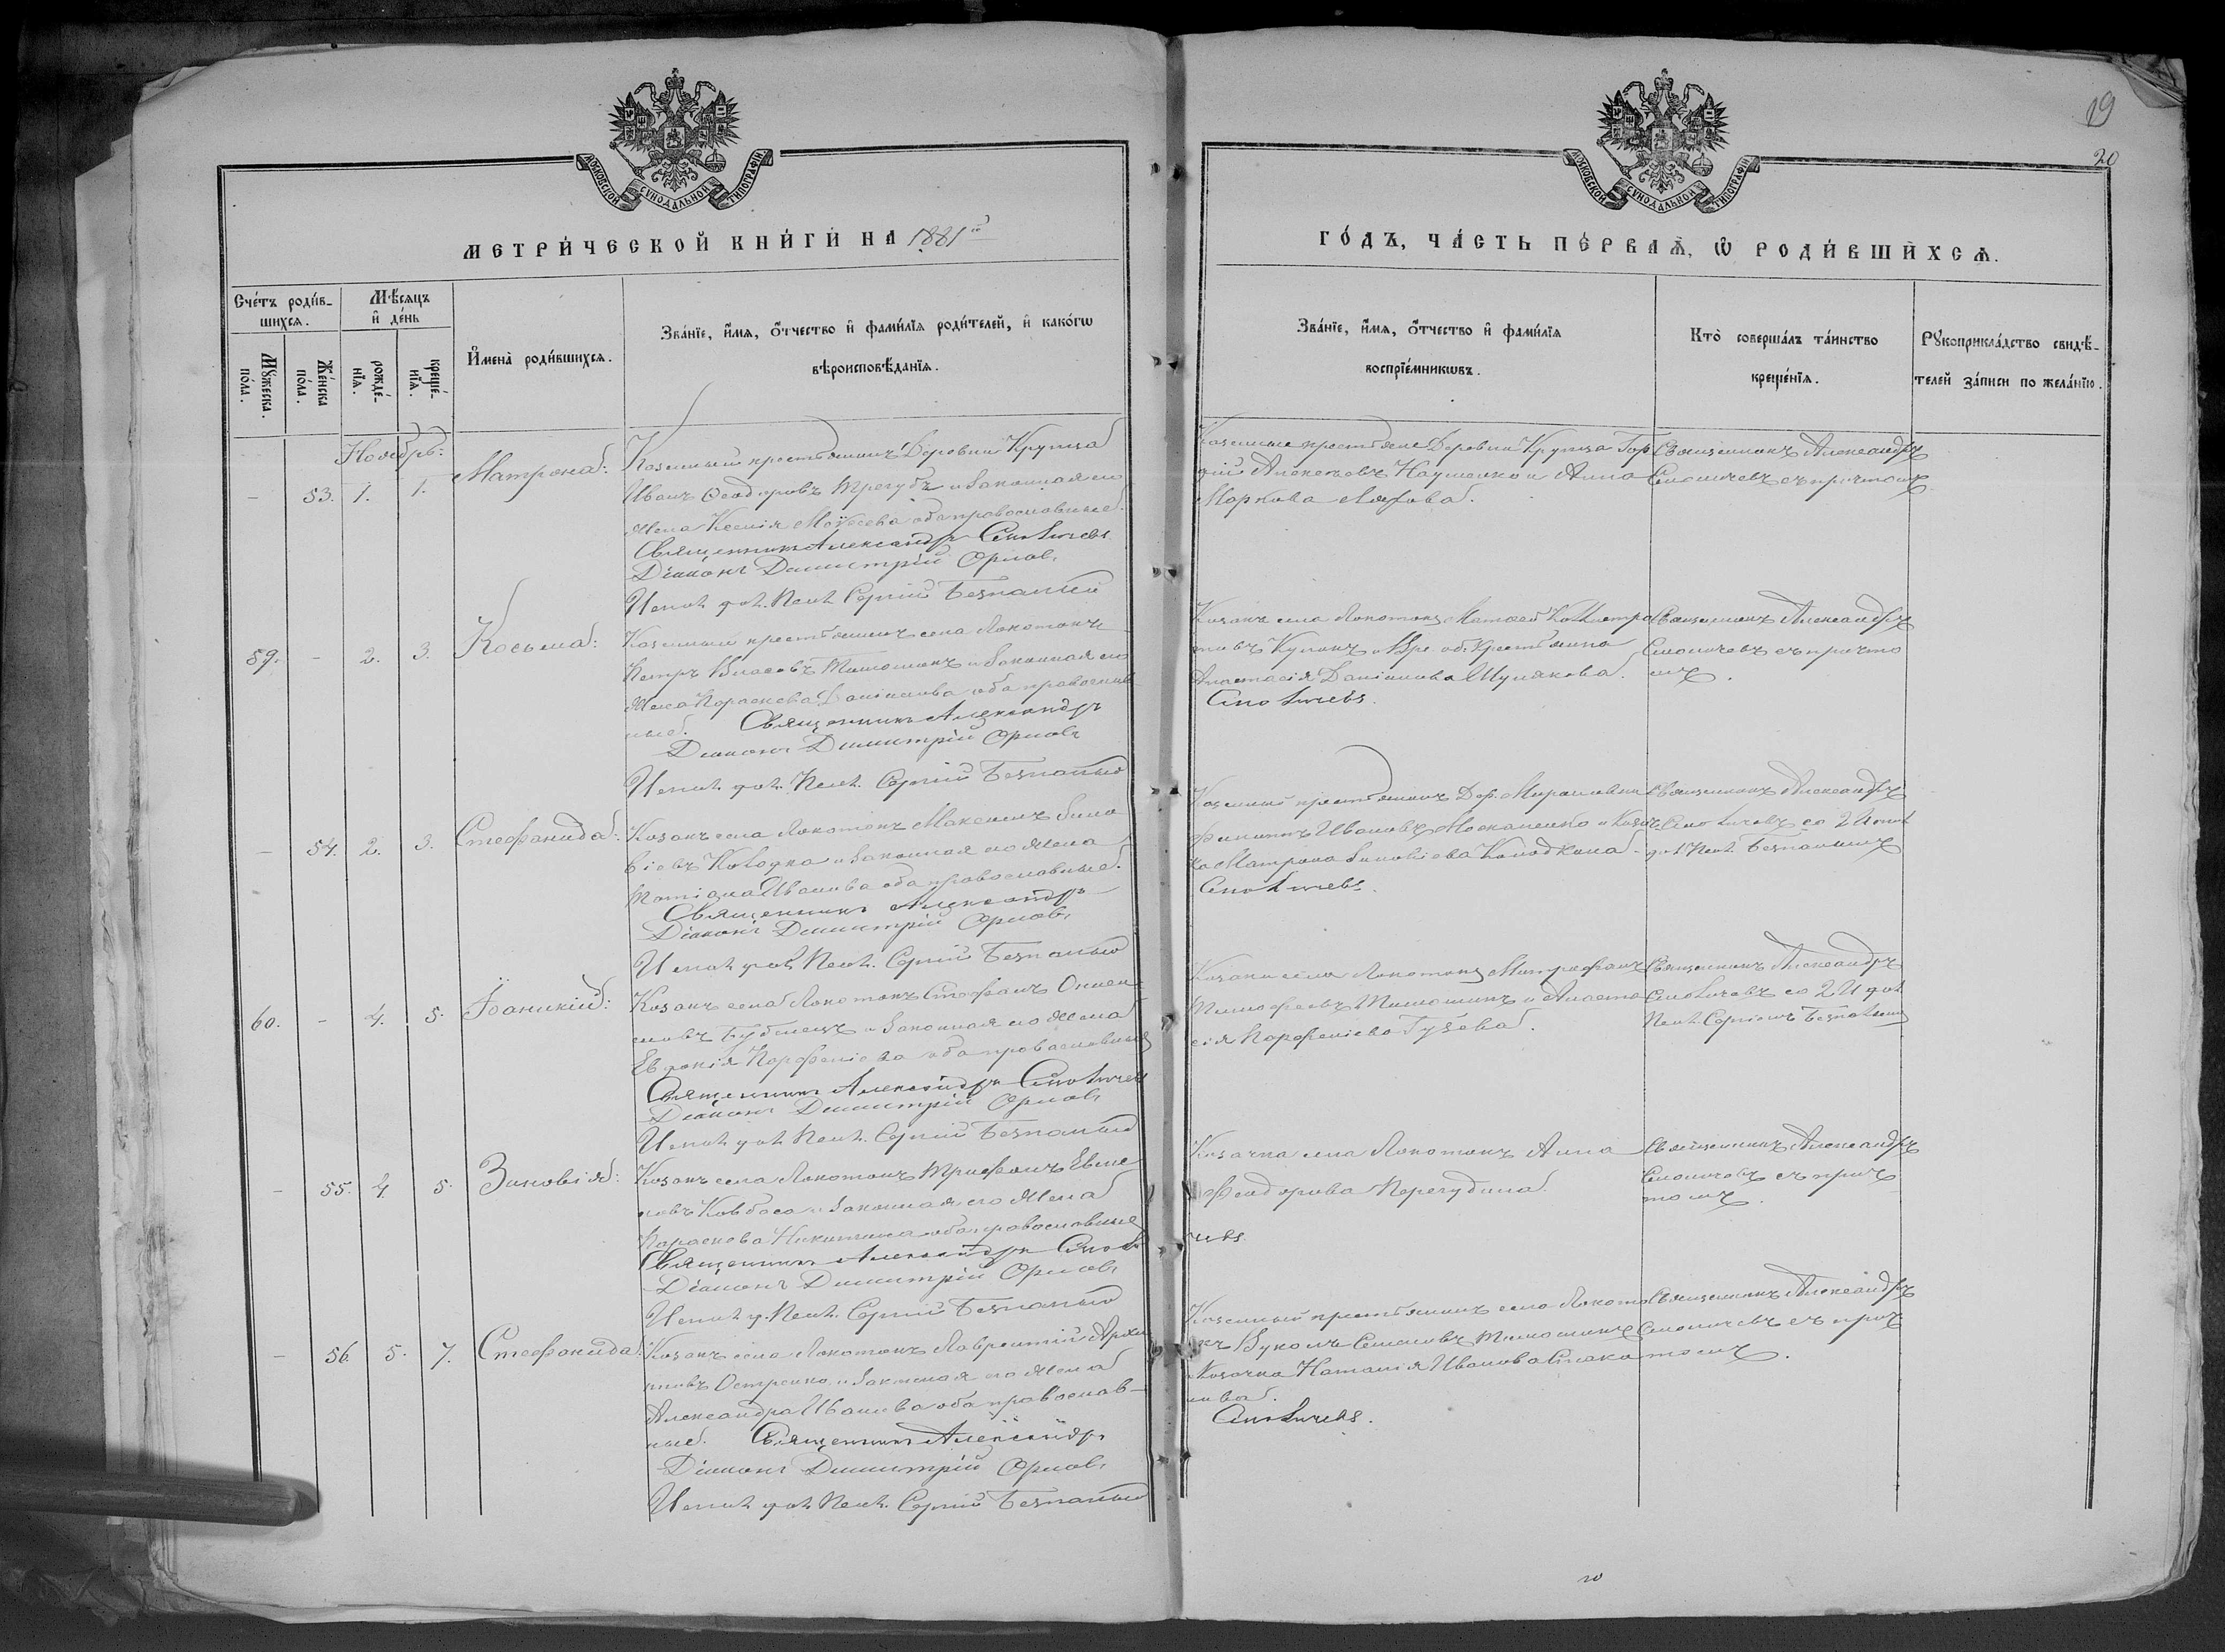 19
20
МОСКОВСКОЙ СѴНОДАЛЬНОЙ ТИПОГРАФІИ.
МОСКОВСКОЙ СѴНОДАЛЬНОЙ ТИПОГРАФІИ.
МЕТРИ́ЧЕСКОЙ КНИ́ГИ НА 1881й
ГО́ДЪ, ЧА́СТЬ ПЕ́РВАѦ, Ѡ РОДИ́ВШИХСѦ.
Сче́тъ роди́в-
шихсѧ.
Мѣ́сѧцъ
и҆ де́нь
Мꙋ́жеска
по́ла.
Же́нска
по́ла.
рожде́-
нїѧ.
креще́-
нїѧ.
И҆мена̀ роди́вшихсѧ.
Зва́нїе, и҆́мѧ, ѻ҆́тчество и҆ фами́лїѧ роди́телей, и҆ како́гѡ
вѣроисповѣ́данїѧ.
Зва́нїе, и҆́мѧ, ѻ҆́тчество и҆ фами́лїѧ
воспрїе́мникѡвъ.
Кто̀ соверша́лъ та́инство
креще́нїѧ.
Рꙋкоприкла́дство свидѣ́-
телей за́писи по жела́нїю.
Ноябрь:
- 53. 1. 1. Матрона:
Казенный крестьянинъ Деревни Крупца
Иванъ Феодоровъ Трегубъ и законная его
жена Ксенія Моѵсеева оба православные.
Священникъ Александръ Смоличевъ
Діаконъ Димитрій Орловъ
Испол. дол. Псал. Сергій Безпалый
Казенные крестьяне Деревни Крупца
Алексѣевъ Науменко и Анна
Маркова Ляхова.
Священникъ Александръ
Смоличевъ съ причтомъ
59. - 2. 3. Косьма:
Казенный крестьянинъ села Локотокъ
Петръ Власовъ Тимошокъ и законная его
жена Параскева Даніилова оба православ
ные. Священникъ Александръ
Діаконъ Димитрій Орловъ
Испол. дол. Псал. Сергій Безпалый
Козакъ села Локотокъ Матвей
Купокъ и Вре. об. Крестьянка
Анастасія Даніилова Шулякова.
Смоличевъ.
Священникъ Александръ
Смоличевъ съ причто
мъ.
- 54. 2. 3. Стефанида:
Козакъ села Локотокъ Максимъ Зино
віевъ и законная его жена
Ивановна оба православные.
Священникъ Александръ
Діаконъ Димитрій Орловъ
Испол. дол. Псал. Сергій Безпалый
Казенный крестьянинъ Дер.
Филиппъ Ивановъ Москаленко и Козач
ка Матрона Зиновіева Колодкина.
Смоличевъ.
Священникъ Александръ
Смоличевъ со И испол.
дол. Псал. Безпалымъ
60. - 4. 5. Іоаникій:
Козакъ села Локотокъ Стефанъ Ониси
мовъ Бублецъ и законная его жена
Евдокія Парфеніева оба православные
Священникъ Александръ Смоличевъ
Діаконъ Димитрій Орловъ
Испол. дол. Псал. Сергій Безпалый
Козаки села Локотокъ Митрофанъ
Тимофеевъ Тимошокъ и Анаста
сія Парфеніева Гузева.
Священникъ Александръ
Смоличевъ со И дол.
Псал. Сергіемъ Безпалымъ
- 55. 4. 5. Зиновія:
Козакъ села Локотокъ Трифонъ Евме
новъ Ковбаса и законная его жена
Параскева Никитина оба православные
Священникъ Александръ Смоли
Діаконъ Димитрій Орловъ
Испол. д. Псал. Сергій Безпалый
Козачка села Локотокъ Анна
Феодорова Перегудина.
чевъ.
Священникъ Александръ
Смоличевъ съ прич
томъ.
- 56. 5. 7. Стефанида:
Козакъ села Локотокъ Лаврентій Архи
повъ Остренко и законная его жена
Александра Иванова оба православ-
ные. Священникъ Александръ
Діаконъ Димитрій Орловъ
Испол. дол. Псал. Сергій Безпалый
Казенный крестьянинъ села Локото
къ Вуколъ Семеновъ Тимошокъ
и Козачка Наталія Иванова
Смоличевъ.
Священникъ Александръ
Смоличевъ съ прич
томъ.